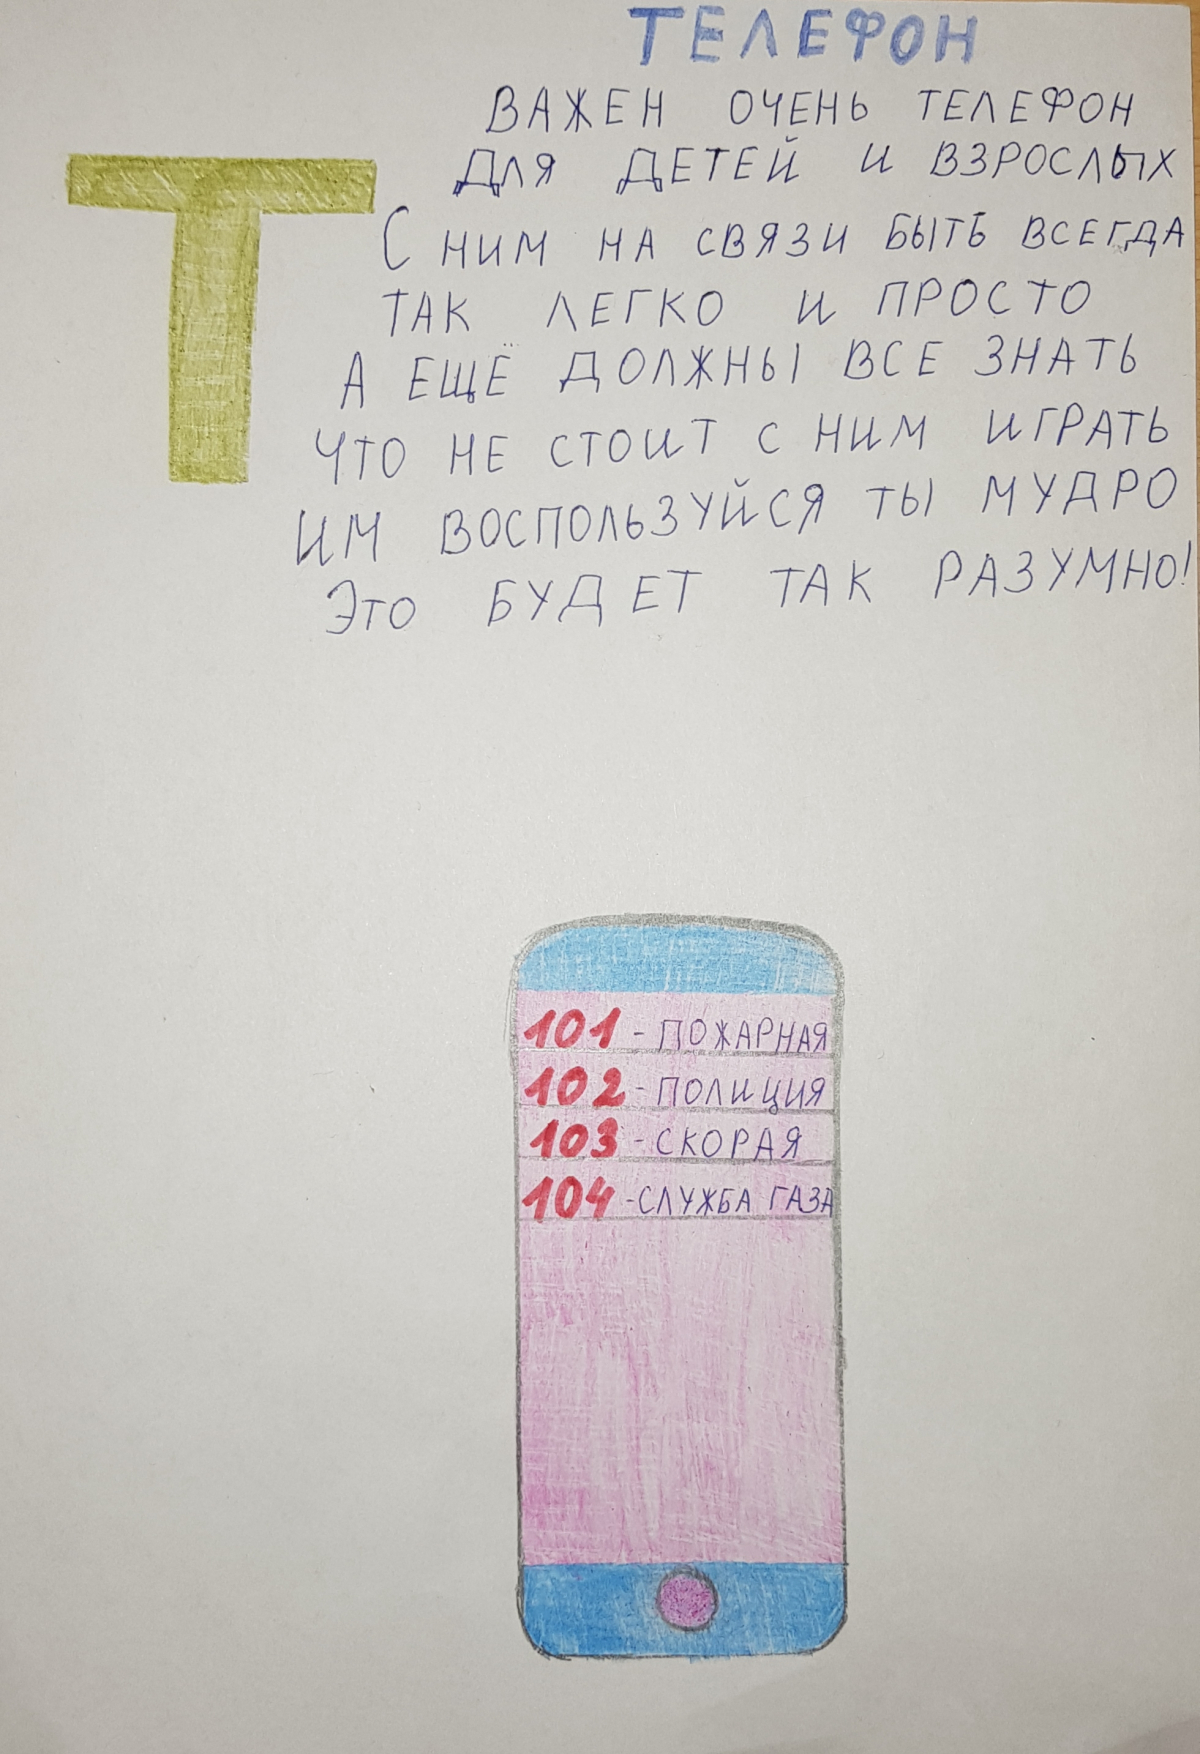 ТЕЛЕФОН
Т
ВАЖЕН ОЧЕНЬ ТЕЛЕФОН
ДЛЯ ДЕТЕЙ И ВЗРОСЛЫХ
С НИМ НА СВЯЗИ БЫТЬ ВСЕГДА
ТАК ЛЕГКО И ПРОСТО
А ЕЩЁ ДОЛЖНЫ ВСЕ ЗНАТЬ
ЧТО НЕ СТОИТ С НИМ ИГРАТЬ
ИМ ВОСПОЛЬЗУЙСЯ ТЫ МУДРО
ЭТО БУДЕТ ТАК РАЗУМНО!
101 - ПОЖАРНАЯ
102 - ПОЛИЦИЯ
103 - СКОРАЯ
104 - СЛУЖБА ГАЗА